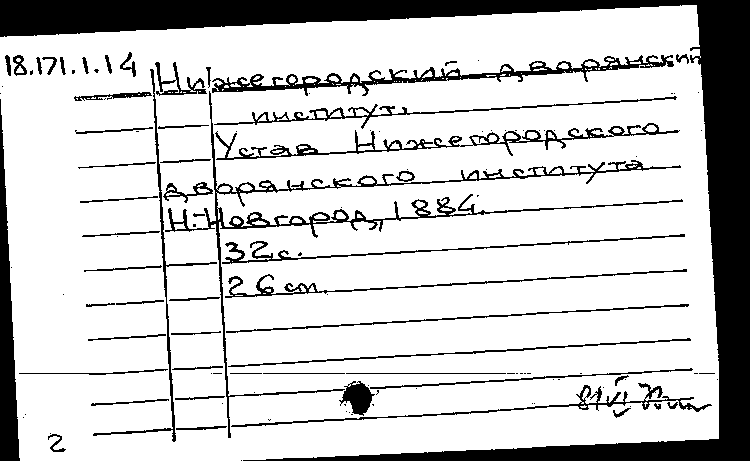 18.171.1.14
Нижегородский дворянский
институт.
Устав Нижегородского
дворянского института
Н.-Новгород, 1884.
32 с.
26 cm.
81 VI
2